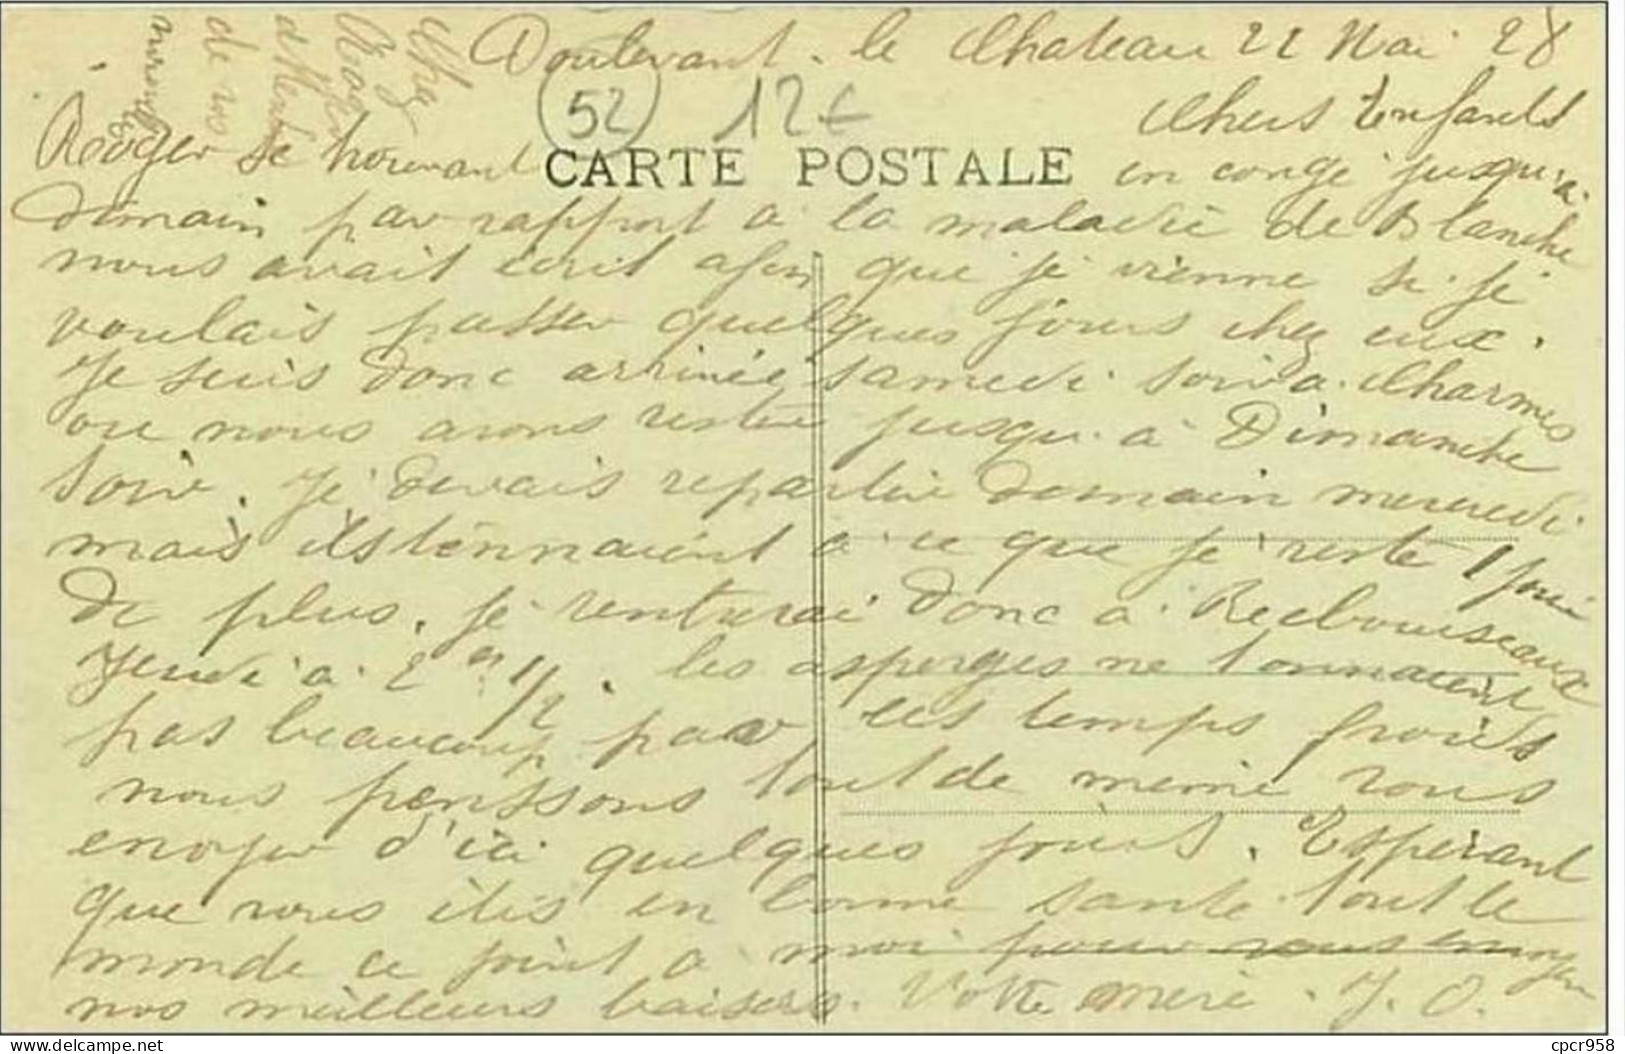 Doulevant. le Chateau 22 Mai 28
52 12€
Chers Enfants
CARTE POSTALE
Roger se trouvant en congé jusqu'à
demain par rapport à la maladie de Blanche
nous avait écrit afin que je vienne si je
voulais passer quelques jours chez eux.
Je suis donc arrivée samedi soir à Charmes
ou nous avons restée jusqu'à Dimanche
soir. Je devais repartir demain mercredi
mais ils tennaient à ce que je reste 1 jour
de plus. je rentrerai donc à
Jeudi à 2 1/2. les asperges ne donnaient
pas beaucoup par ces temps froids
nous penssons tout de meme vous
envoyer d'ici quelques jours. Esperant
que vous êtes en bonne santé. tout le
monde ce joint à moi pour vous envoyer
nos meilleurs baisers. Votre mère. J. O.
de vos
cpcr958